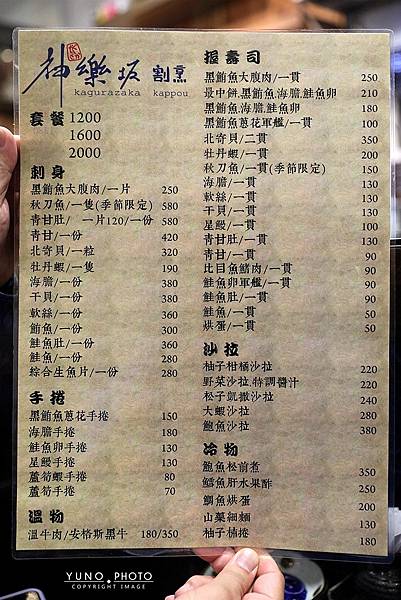 神樂坂 割烹
kagurazaka kappou
套餐 1200
1600
2000
刺身
黑鮪魚大腹肉/一片 250
秋刀魚/一隻(季節限定) 580
青甘肚/ 一片120/一份 580
青甘/一份 420
北寄貝/一粒 320
牡丹蝦/一隻 190
海膽/一份 380
干貝/一份 380
軟絲/一份 360
鮪魚/一份 300
鮭魚肚/一份 360
鮭魚/一份 280
綜合生魚片/一份 280
手捲
黑鮪魚蔥花手捲 150
海膽手捲 180
鮭魚卵手捲 130
星鰻手捲 130
蘆筍蝦手捲 80
蘆筍手捲 70
溫物
溫牛肉/安格斯黑牛 180/350
握壽司
黑鮪魚大腹肉/一貫 250
最中餅.黑鮪魚.海膽.鮭魚卵 210
黑鮪魚.海膽.鮭魚卵 180
黑鮪魚蔥花軍艦/一貫 100
北寄貝/二貫 350
牡丹蝦/一貫 200
秋刀魚/一貫(季節限定) 150
海膽/一貫 130
軟絲/一貫 100
干貝/一貫 130
星鰻/一貫 100
青甘肚/一貫 130
青甘/一貫 90
比目魚鰭肉/一貫 90
鮭魚卵軍艦/一貫 130
鮭魚肚/一貫 90
鮭魚/一貫 50
烘蛋/一貫 50
沙拉
柚子柑橘沙拉 220
野菜沙拉.特調醬汁 220
松子凱撒沙拉 240
大蝦沙拉 280
鮑魚沙拉 380
冷物
鮑魚松前煮 350
鱈魚肝水果酢 250
鯛魚烘蛋 200
山藥細麵 130
柚子柿捲 180
YUNO PHOTO
COPYRIGHT IMAGE